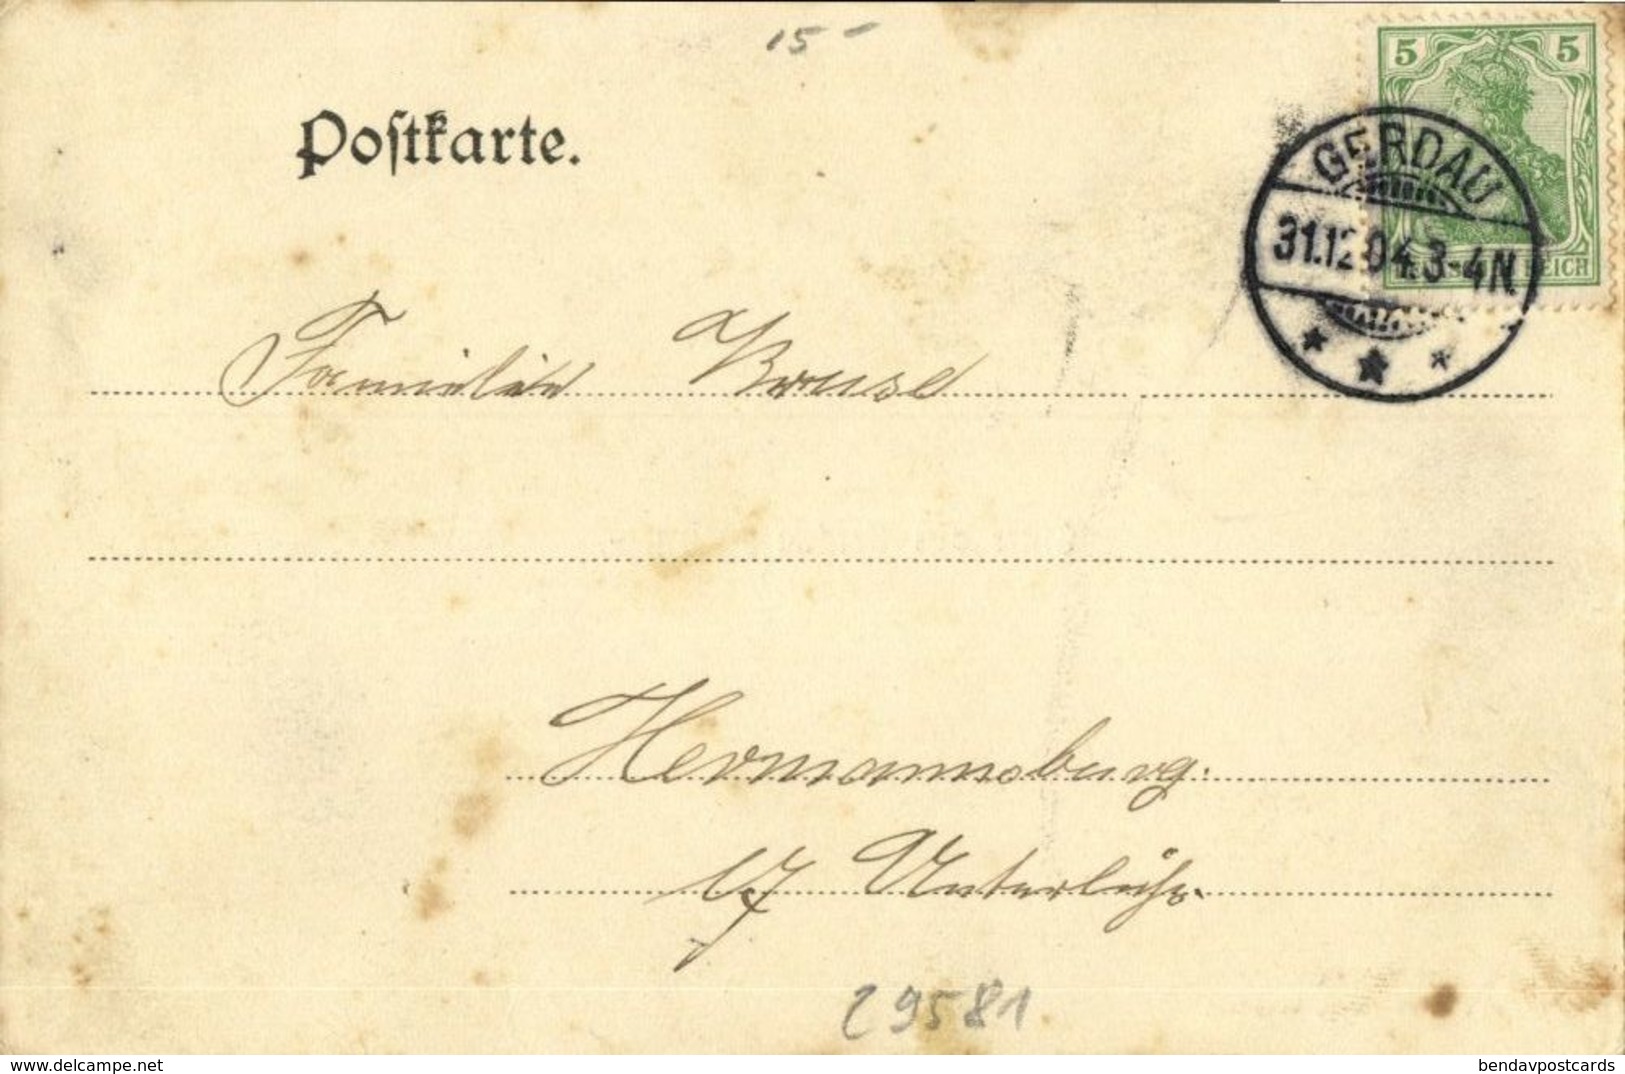 15-
Postkarte.
5 5
GERDAU
31.12.04.3-4N.
REICH
Familie Kruse
Hermannsburg.
b/ Unterlüß.
29581
delcampe.net
bendavpostcards